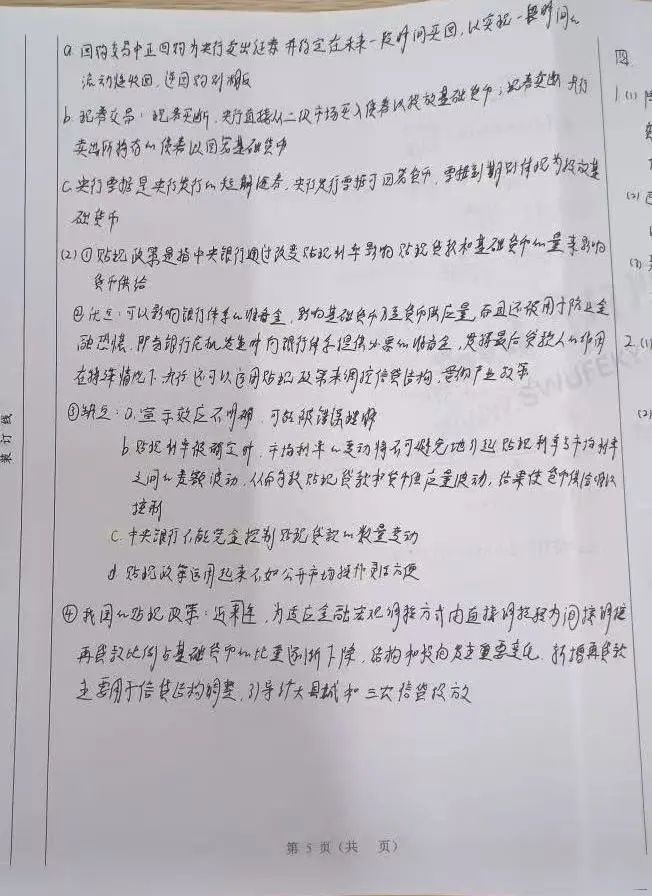 a. 回购交易中正回购为央行卖出证券并约定在未来一段时间买回,以实现一段时间的
流动性收回,逆回购则相反
b. 现券交易:现券买断,央行直接从二级市场买入债券以投放基础货币;现券卖断,央行
卖出所持有的债券以回笼基础货币
C. 央行票据是央行发行的短期证券,央行发行票据可回笼货币,票据到期则体现为投放基
础货币
(2) ① 贴现政策是指中央银行通过改变贴现利率影响贴现贷款和基础货币的量来影响
货币供给
② 优点:可以影响银行体系的准备金,影响基础货币乃至货币供应量,而且还被用于防止金
融恐慌,即当银行危机发生时向银行体系提供必要的准备金,发挥最后贷款人的作用
在特殊情况下,央行还可以运用贴现政策来调控信贷结构,贯彻产业政策
③ 缺点:a. 宣示效应不明确,可能被错误理解
b 贴现利率被确定时,市场利率的变动将不可避免地引起贴现利率与市场利率
之间的差额波动,从而导致贴现贷款和货币供应量波动,结果使货币供给难以
控制
C. 中央银行不能完全控制贴现贷款的数量变动
d 贴现政策运用起来不如公开市场操作灵活方便
④ 我国的贴现政策:近来年,为适应金融宏观调控方式由直接调控转为间接调控
再贷款比例占基础货币的比重逐渐下降,结构和投向发生重要变化,新增再贷款
主要用于信贷结构调整,引导扩大县域和三农信贷投放
装订线
第 5 页(共 页)
四
1 (1)
(2)
(3)
2. (1)
(2)